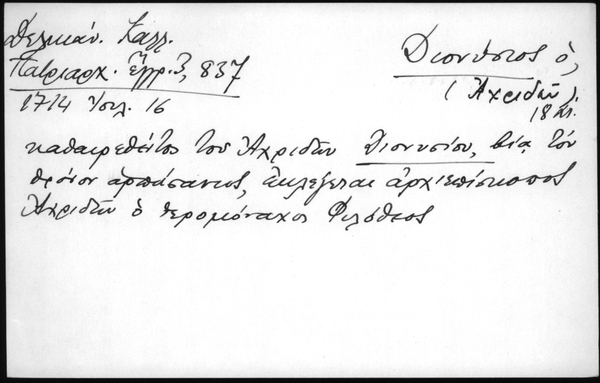 Δελικάν. Καλλ.
Πατριαρχ. Ἔγγρ. 3, 837
1714 Ἰουλ. 16
Διονύσιος ὁ,
(Ἀχριδῶν)
18 αἰ.
καθαιρεθέντος τοῦ Ἀχριδῶν Διονυσίου, βίᾳ τόν
θρόνον ἁρπάσαντος, ἐκλέγεται ἀρχιεπίσκοπος
Ἀχριδῶν ὁ ἱερομόναχος Φιλόθεος